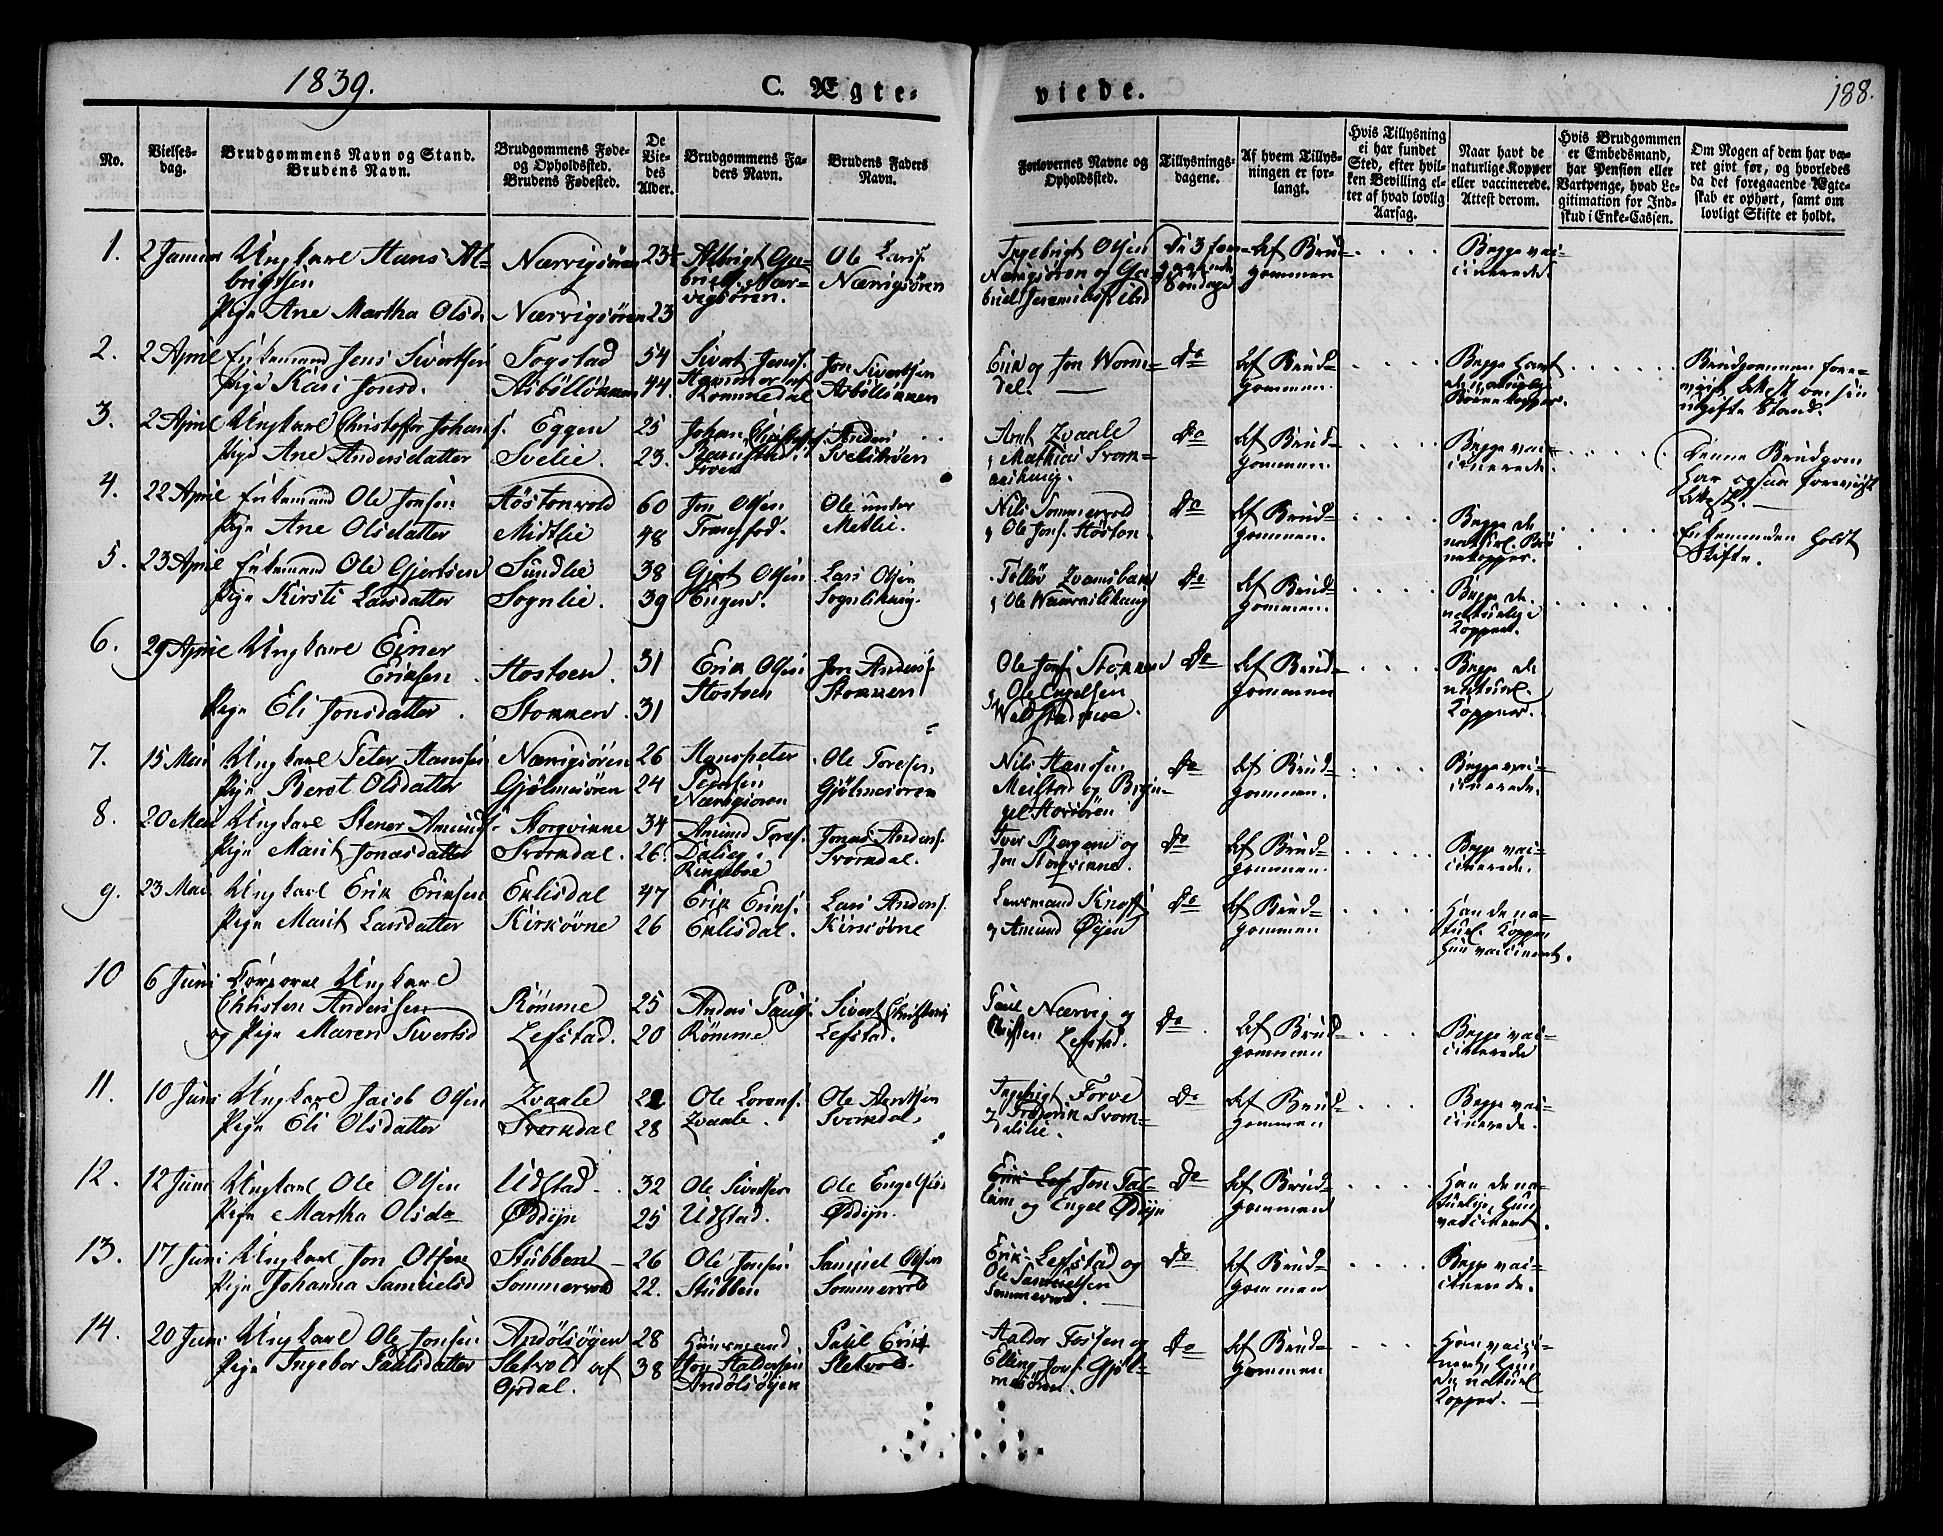 1839.
C. Ægte-
viede.
188.
No.
Vielses-
dag.
Brudgommens Navn og Stand.
Brudens Navn.
Brudgommens Føde-
og Opholdssted.
Brudens Fødested.
De
Vie-
des
Alder.
Brudgommens Fa-
ders Navn.
Brudens Faders
Navn.
Forlovernes Navne og
Opholdssted.
Tillysnings-
dagene.
Af hvem Tillys-
ningen er for-
langt.
Hvis Tillysning
ei har fundet
Sted, efter hvil-
ken Bevilling el-
ler af hvad lovlig
Aarsag.
Naar havt de
naturlige Kopper
eller vaccinerede.
Attest derom.
Hvis Brudgommen
er Embedsmand,
har Pension eller
Vartpenge, hvad Le-
gitimation for Ind-
skud i Enke-Cassen.
Om Nogen af dem har væ-
ret givt før, og hvorledes
da det foregaaende Ægte-
skab er ophørt, samt om
lovligt Skifte er holdt.
1.
2 Januar
Ungkarl Hans Al-
brigtsen
Pige Ane Martha Olsd.
Nærvigsören
Nærvigsören
23
Albrigt Ga-
briels. Nær-
vigsören.
Ole Larss.
Nærvigsören
Ingebrigt Olsen
Nærvigsören og Ga-
De 3 fore-
gaaende
Søndage
Af Brud-
gommen
Begge vac-
cinerede.
2.
2 April
Enkemand Jens Sivertsen
Pige Kari Jonsd.
Togstad
Asböllökken
54
44
Sivert Jenss.
Hammer af
Romsdal
Jon Sivertsen
Asböllökken
Erik og Jon Worm-
dal.
Do
Af Brud-
gommen.
Begge havt
de naturlige
Börnekopper.
Brudgommen fore-
viist Attest om sin
ugifte Stand.
3.
2 April
Ungkarl Christoffer Johans.
Pige Ane Andersdatter
Eggen
Svelie.
25
23.
Johan Christoff.
Anders
Arnt Zvaale
og Mathias Svorn-
Do
Af Brud-
gommen.
Begge vac-
cinerede.
Denne Brudgom
har ogsaa foreviist
Attest.
4.
22 April
Enkemand Ole Jonsen
Pige Ane Olsdatter
Höstonvold
Midtlie
60
48
Jon Olsen
Ole under
Metlie.
Nils Sommervold
og Ole Jons. Höston
Do
Af Brud-
gommen.
Begge de
naturl. Bör-
nekopper.
Enkemanden holdt
Skifte.
5.
23 April
Enkemand Ole Gjertsen
Pige Kirsti Larsdatter
Sundlie
Sognlie.
38
39
Gjert Olsen
Lars Olsen
Do
Af Brud-
gommen.
Begge de
naturlige
Kopper.
6.
29 April
Ungkarl Einer
Eriksen
Pige Eli Jonsdatter.
Hostoen.
Stokken.
31
31
Erik Olsen
Hostoen
Jon Anderss.
Stokken
Ole Jons. Stokken
og Ole Engelsen
Do
Af Brud-
gommen
Begge de
naturl.
Kopper.
7.
15 Mai
Ungkarl Peter Hanssen
Pige Beret Olsdatter
Nærvigsören
Gjölmesören
26
24
Hanspeter
Pedersen
Nærvigsören
Ole Toresen
Gjölmesören
Nils Hanssen
Meilstad og Bryn-
Do
Af Brud-
gommen.
Begge vac-
cinerede.
8.
20 Mai
Ungkarl Stener Amunds.
Pige Marit Jonasdatter
Storqvinne
Svorkdal.
34
26.
Amund Tores.
Ringeboe
Jonas Anders.
Svorkdal.
Iver Bergene og
Jon Storqvinne.
Do
Af Brud-
gommen.
Begge vac-
cinerede.
9.
23 Mai
Ungkarl Erik Eriksen
Pige Marit Larsdatter
Eklisdal
Kirköyne
47
26
Erik Eriks.
Eklisdal.
Lars Anders.
Kirköyne
Lensmand Knoff
og Amund Øyen
Do
Af Brud-
gommen
Han de na-
turl. Kopper,
hun vaccineret.
10
6 Juni
Ungkarl
Christen Anderssen
og Pige Maren Sivertsd
Römme
Lefstad.
25
20
Anders Paulss.
Römme
Sivert Christens.
Lefstad.
Paul Nærvig og
Christen Lefstad.
Do.
Af Brud-
gommen
Begge vac-
cinerede
11.
10 Juni
Ungkarl Jacob Olsen
Pige Eli Olsdatter
Zvaale
Svorkdal
22
28
Ole Lorens.
Zvaale.
Ole Arntsen
Svorkdal.
Ingebrigt Forve
og Frederik Svork-
dalslie.
Do
Af Brud-
gommen
Begge vac-
cinerede.
12.
12 Juni
Ungkarl Ole Olsen
Pige Martha Olsda-
Udstad.
Øddyn
32
25
Ole Sivertsen
Udstad.
Ole Engelsen
Øddyn.
Erik Lef Jon Sol-
og Engel Øddyn
Do
Af Brud-
gommen
Han de na-
turlige, hun
vaccineret.
13.
17 Juni
Ungkarl Jon Olsen
Pige Johanna Samuelsd
Stubben
Sommervold
26
22.
Ole Jonsen
Stubben
Samuel Olsen
Sommervold
Erik Lefstad og
Ole Samuelsen
Sommervold.
Do
Af Brud-
gommen
Begge vac-
cinerede.
14.
20 Juni
Ungkarl Ole Jonsen
Pige Ingebor Paulsdatter
Andölsöyen
Sletvold af
Opdal.
28
38
Huusmand
Jon Haldorsen
Andölsöyen
Paul Erik
Sletvold.
Haldor Fossen og
Elling Jons. Gjöl-
mesören.
Do
Af Brud-
gommen
Han vacci-
neret, hun
de naturl
Kopper.